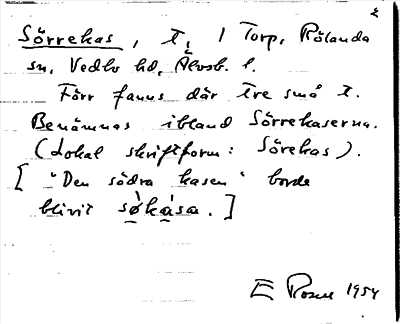 2
Sörrekas, t, 1 Torp, Rölanda
sn, Vedbo hd, Älvsb. l.
Förr fanns där tre små t.
Benämnas ibland Sörrekaserna.
(Lokal skriftform: Sörekas).
["Den södra kasen" borde
blivit sökåsa.]
E Rosell 1954